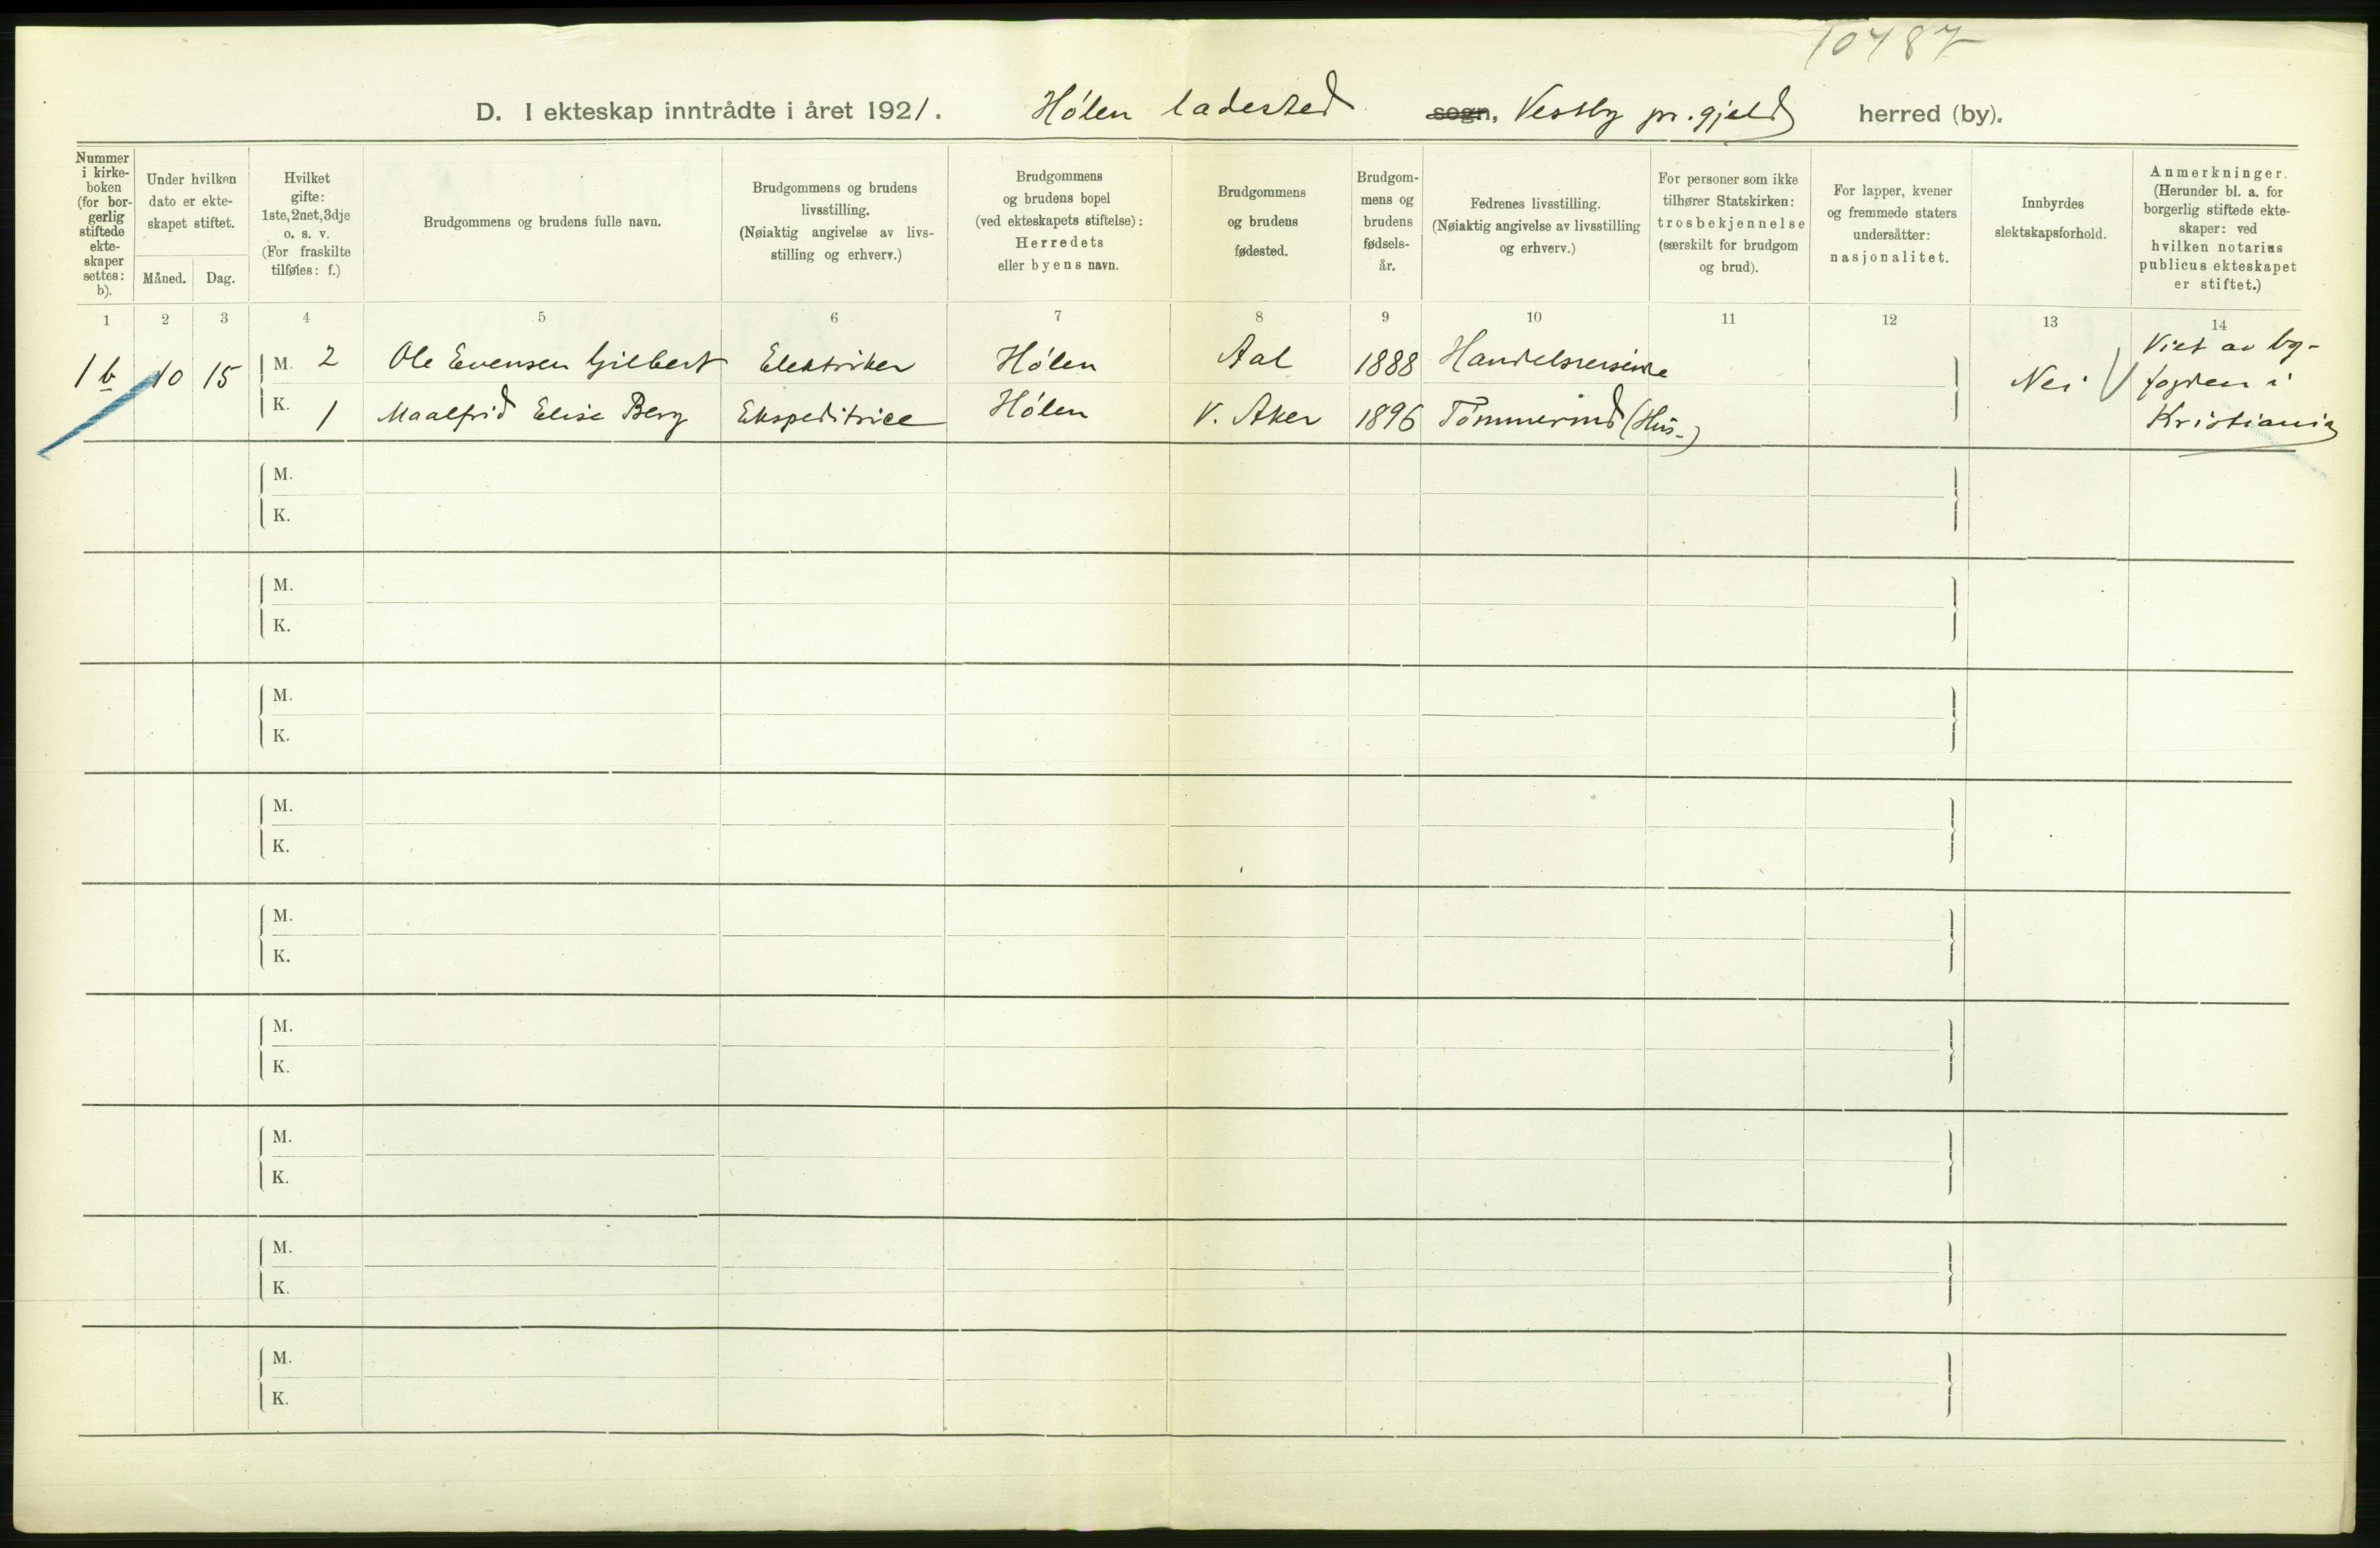 10487
D. I ekteskap inntrådte i året 1921. Hølen ladested sogn, Vestby pr.gjeld herred (by).
Nummer
i kirke-
boken
(for bor-
gerlig
stiftede
ekte-
skaper
settes:
b).
Under hvilken
dato er ekte-
skapet stiftet.
Måned. Dag.
Hvilket
gifte:
1ste, 2net, 3dje
o. s. v.
(For fraskilte
tilføies: f.)
Brudgommens og brudens fulle navn.
Brudgommens og brudens
livsstilling.
(Nøiaktig angivelse av livs-
stilling og erhverv.)
Brudgommens
og brudens bopel
(ved ekteskapets stiftelse):
Herredets
eller byens navn.
Brudgommens
og brudens
fødested.
Brudgom-
mens og
brudens
fødsels-
år.
Fedrenes livsstilling.
(Nøiaktig angivelse av livsstilling
og erhverv.)
For personer som ikke
tilhører Statskirken:
trosbekjennelse
(særskilt for brudgom
og brud).
For lapper, kvener
og fremmede staters
undersåtter:
nasjonalitet.
Innbyrdes
slektskapsforhold.
Anmerkninger.
(Herunder bl. a. for
borgerlig stiftede ekte-
skaper: ved
hvilken notarius
publicus ekteskapet
er stiftet.)
1 2 3 4 5 6 7 8 9 10 11 12 13 14
1 b 10 15 M. 2 Ole Evensen Gilbert Elektriker Hølen Aal 1888 Handelsreisende
K. 1 Maalfrid Elise Berg Ekspeditrice Hølen V. Aker 1896 Tømmermd (Hus-)
Nei
Viet av by-
fogden i
Kristiania
M.
K.
M.
K.
M.
K.
M.
K.
M.
K.
M.
K.
M.
K.
M.
K.
M.
K.